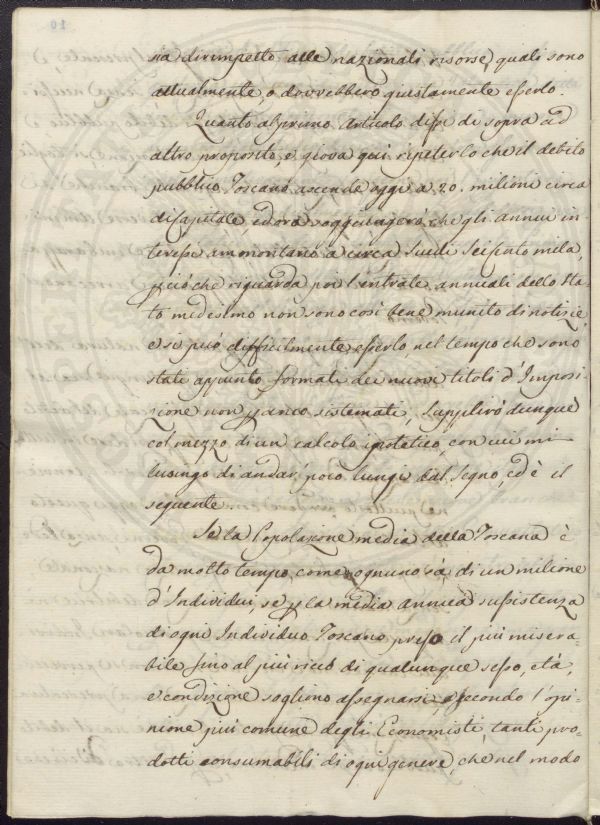 sia dirimpetto alle nazionali risorse, quali sono
attualmente, o dovrebbero giustamente esserlo.
Quanto al primo articolo dissi di sopra ad
altro proposito, e giova quì ripeterlo che il debito
pubblico Toscano ascende oggi a 20. milioni circa
di Capitale, ed ora soggiungerò che gli annui in-
teressi ammontano a circa Scudi Seicento mila,
ciò che riguarda poi l'entrate annuali dello Sta-
to medesimo non sono così bene munito di notizie
e si può difficilmente esserlo, nel tempo che sono
stati appunto formati dei nuovi titoli d'Imposi-
zione non p anco sistemati, Supplirò dunque
col mezzo di un calcolo ipotetico, con cui mi
lusingo di andar' poco lungi dal Segno, ed è il
seguente.
Se la Popolazione media della Toscana è
da molto tempo, come ognuno sà, di un milione
d'Individui, se p la media annua sussistenza
di ogni Individuo Toscano preso il più misera-
bile fino al più ricco di qualunque sesso, età,
e condizione sogliono assegnarsi, secondo l'opi-
nione più comune degli Economisti, tanti pro-
dotti consumabili di ogni genere, che nel modo